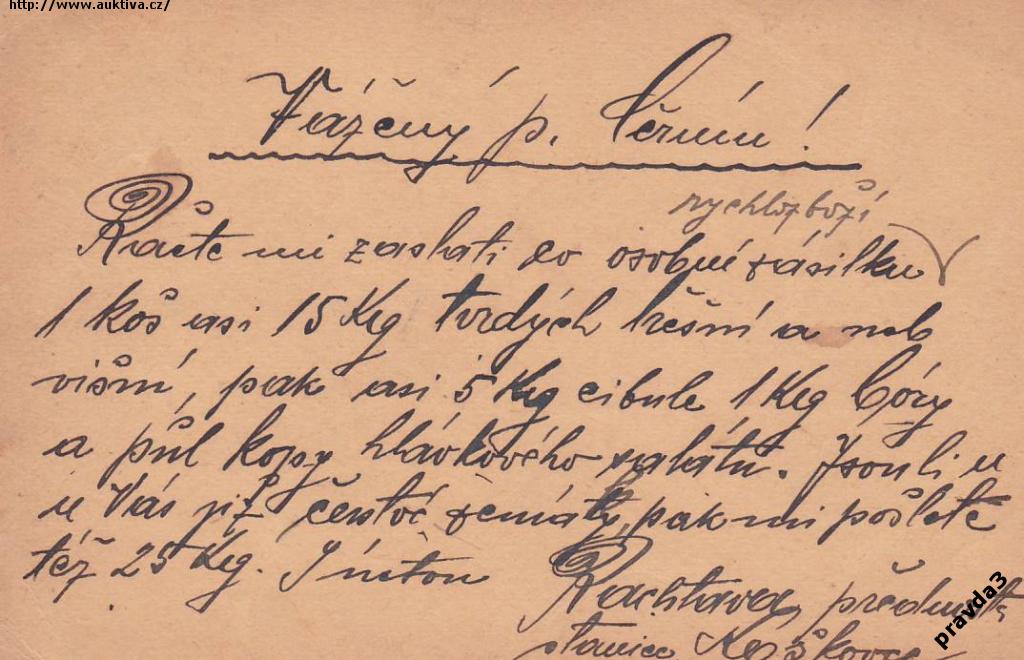 http://www.auktiva.cz/
Vážený p. Černín!
rychlozboží
Račte mi zaslati co osobní zásilku
1 koš asi 15 Kg tvrdých třešní a neb
višní, pak asi 5 Kg cibule 1 Kg
a půl kopy hlávkového salátu. Jsou li u
u Vás již čerstvé zemáky, pak mi pošlete
též 25 Kg. S úctou
přednosta
stanice
pravda3